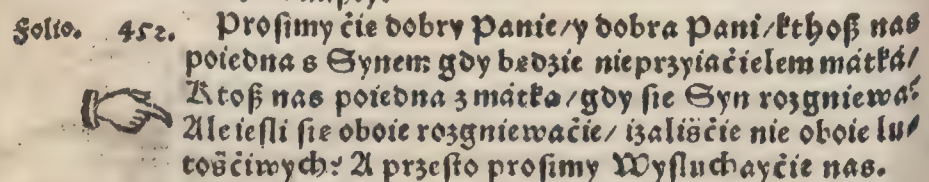 Folio. 452. Prosimy cie dobry Panie/y dobra Pani/kthoß nas
poiedna s Synem gdy bedzie nieprzyiaćielem mátká/
Ktoß nas poiedna z mátka/gdy sie Syn rozgniewa?
Ale iesli sie oboie rozgniewaćie/izaliśćie nie oboie lu⸗
tośćiwych? A przesto prosimy Wysluchayćie nas.